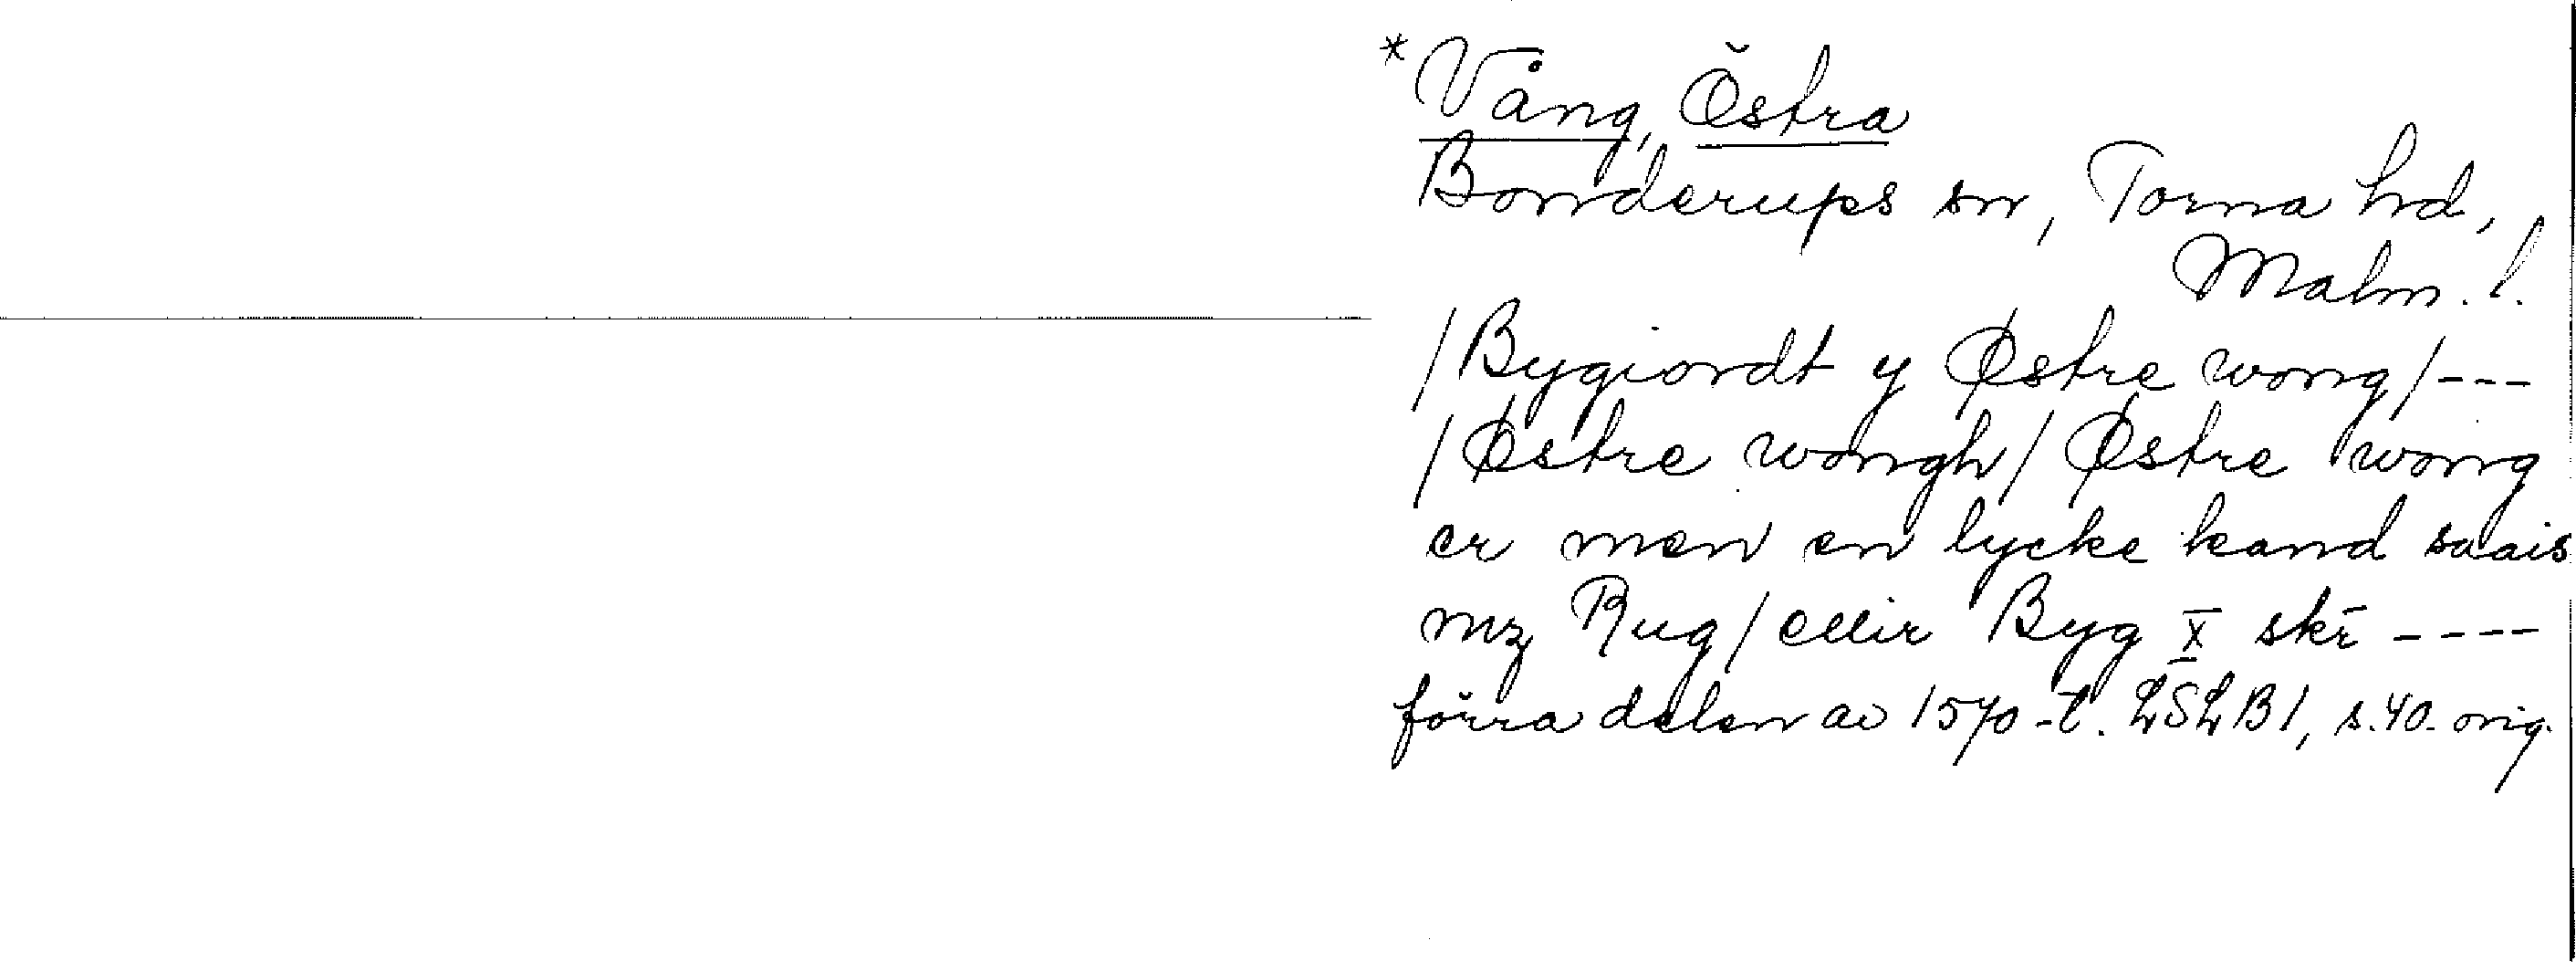 *Vång, Östra
Bonderups sn, Torna hd,
Malm. l.
/Bygiordt y Østre wong/---
/Østre wongh/ Østre wong
er men en lycke kand saais
mz Rug/ ellir Byg X skr̄ ----
förra delen av 1570-t. LSLB1, s. 40. orig.